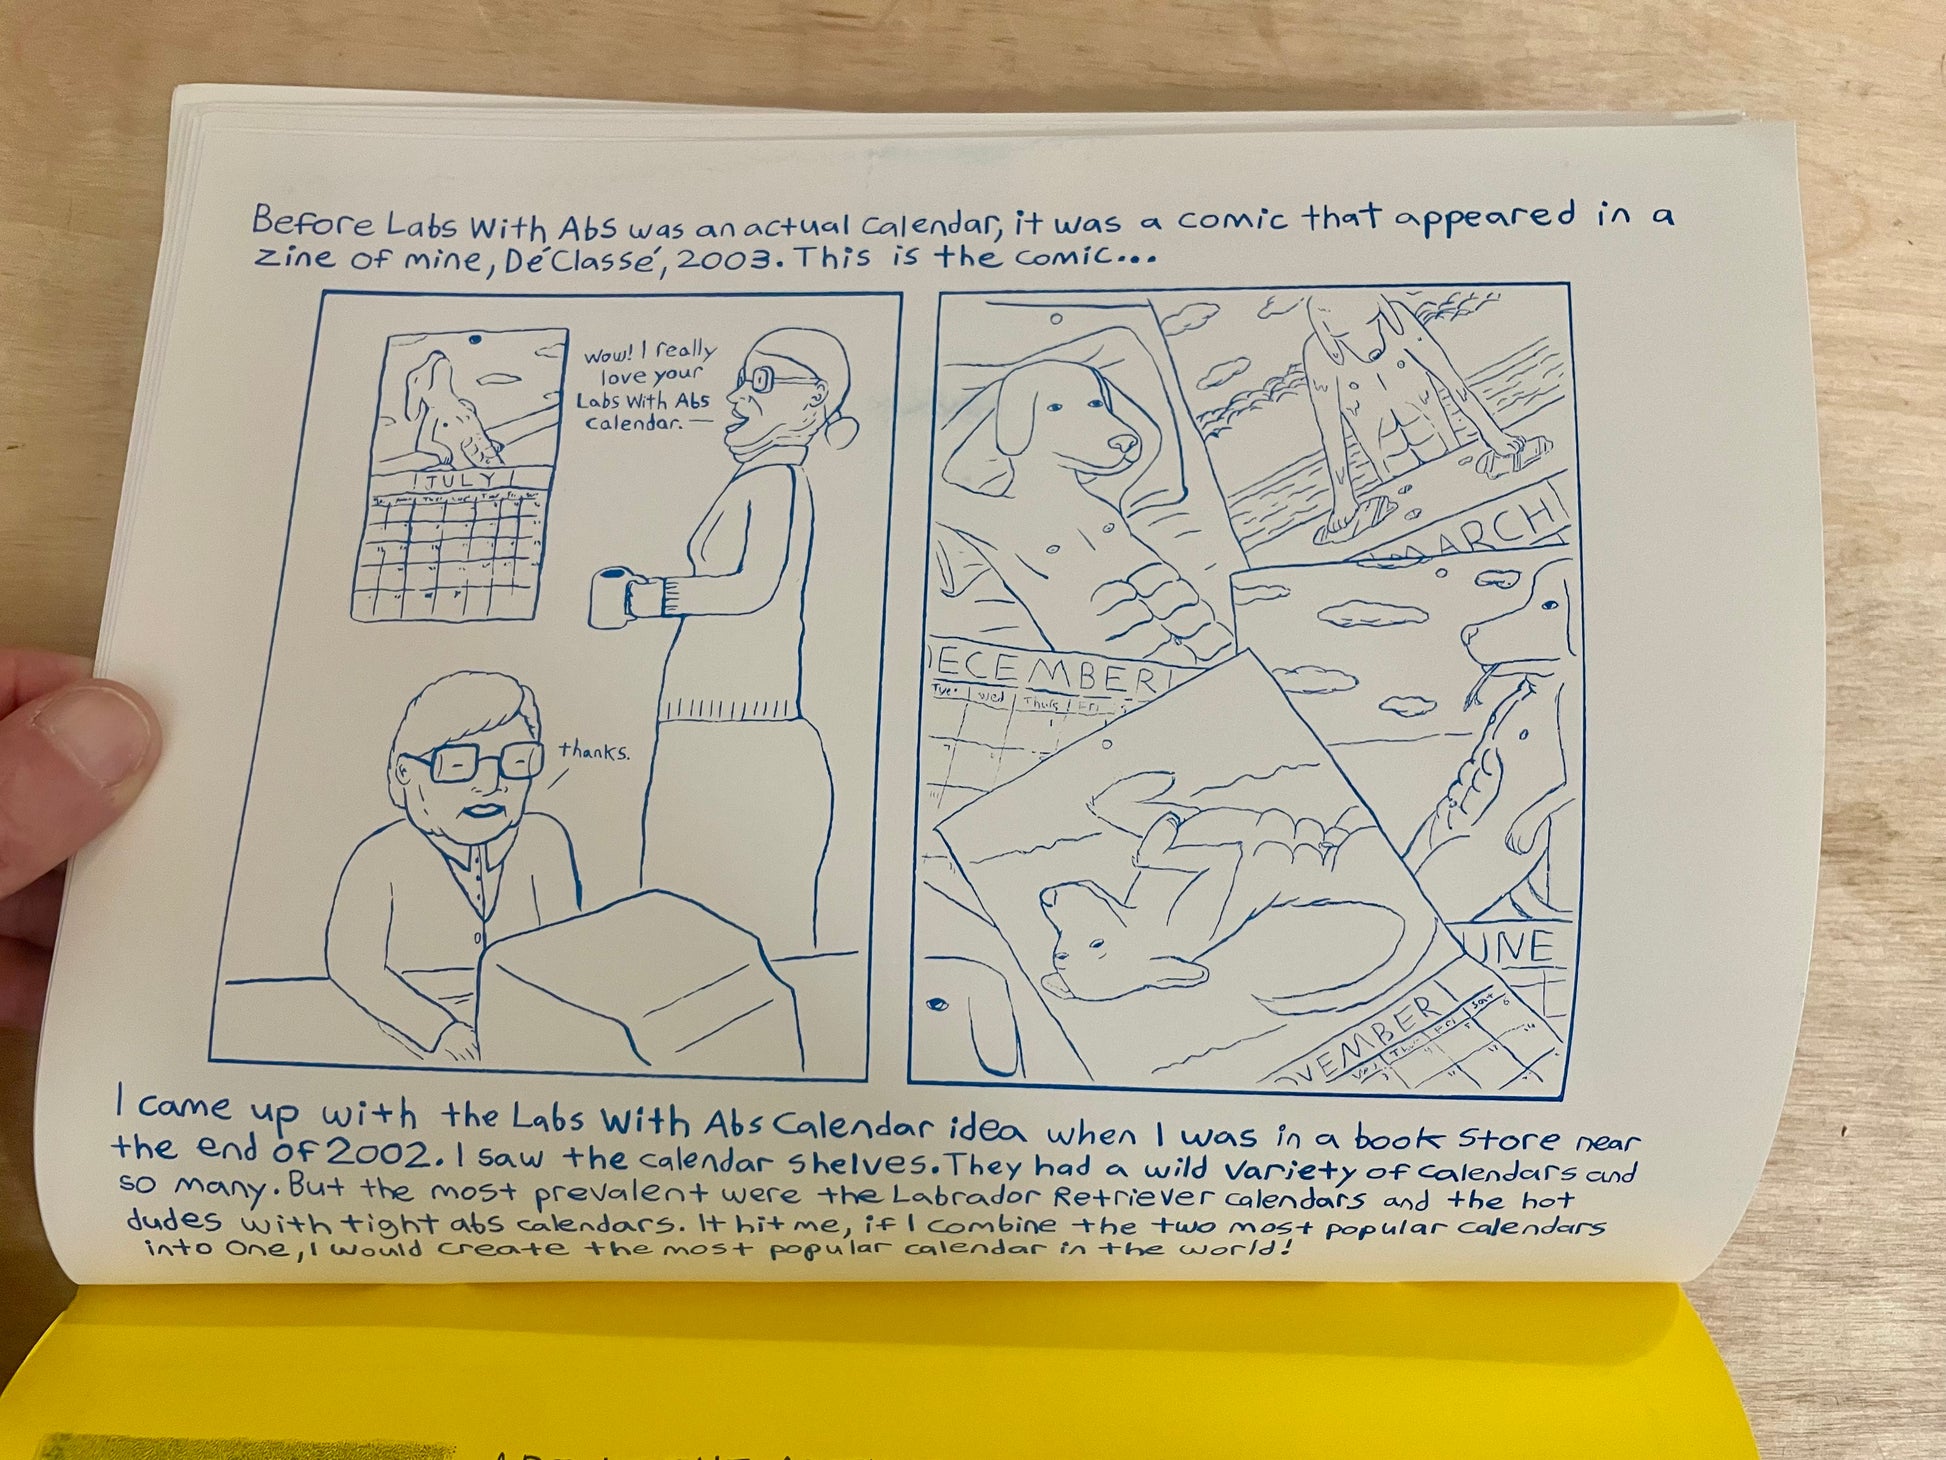 Before Labs With Abs was an actual Calendar, it was a comic that appeared in a
zine of mine, DéClassé, 2003. This is the comic...
Wow! I really
love your
Labs With Abs
Calendar.
JULY
thanks.
MARCH
ECEMBER
Tue. Wed Thurs Fri
UNE
VEMBER
Wed Thur Fri Sat
I came up with the Labs With Abs Calendar idea when I was in a book store near
the end of 2002. I saw the calendar shelves. They had a wild variety of calendars and
so many. But the most prevalent were the Labrador Retriever calendars and the hot
dudes with tight abs calendars. It hit me, if I combine the two most popular calendars
into one, I would create the most popular calendar in the world!